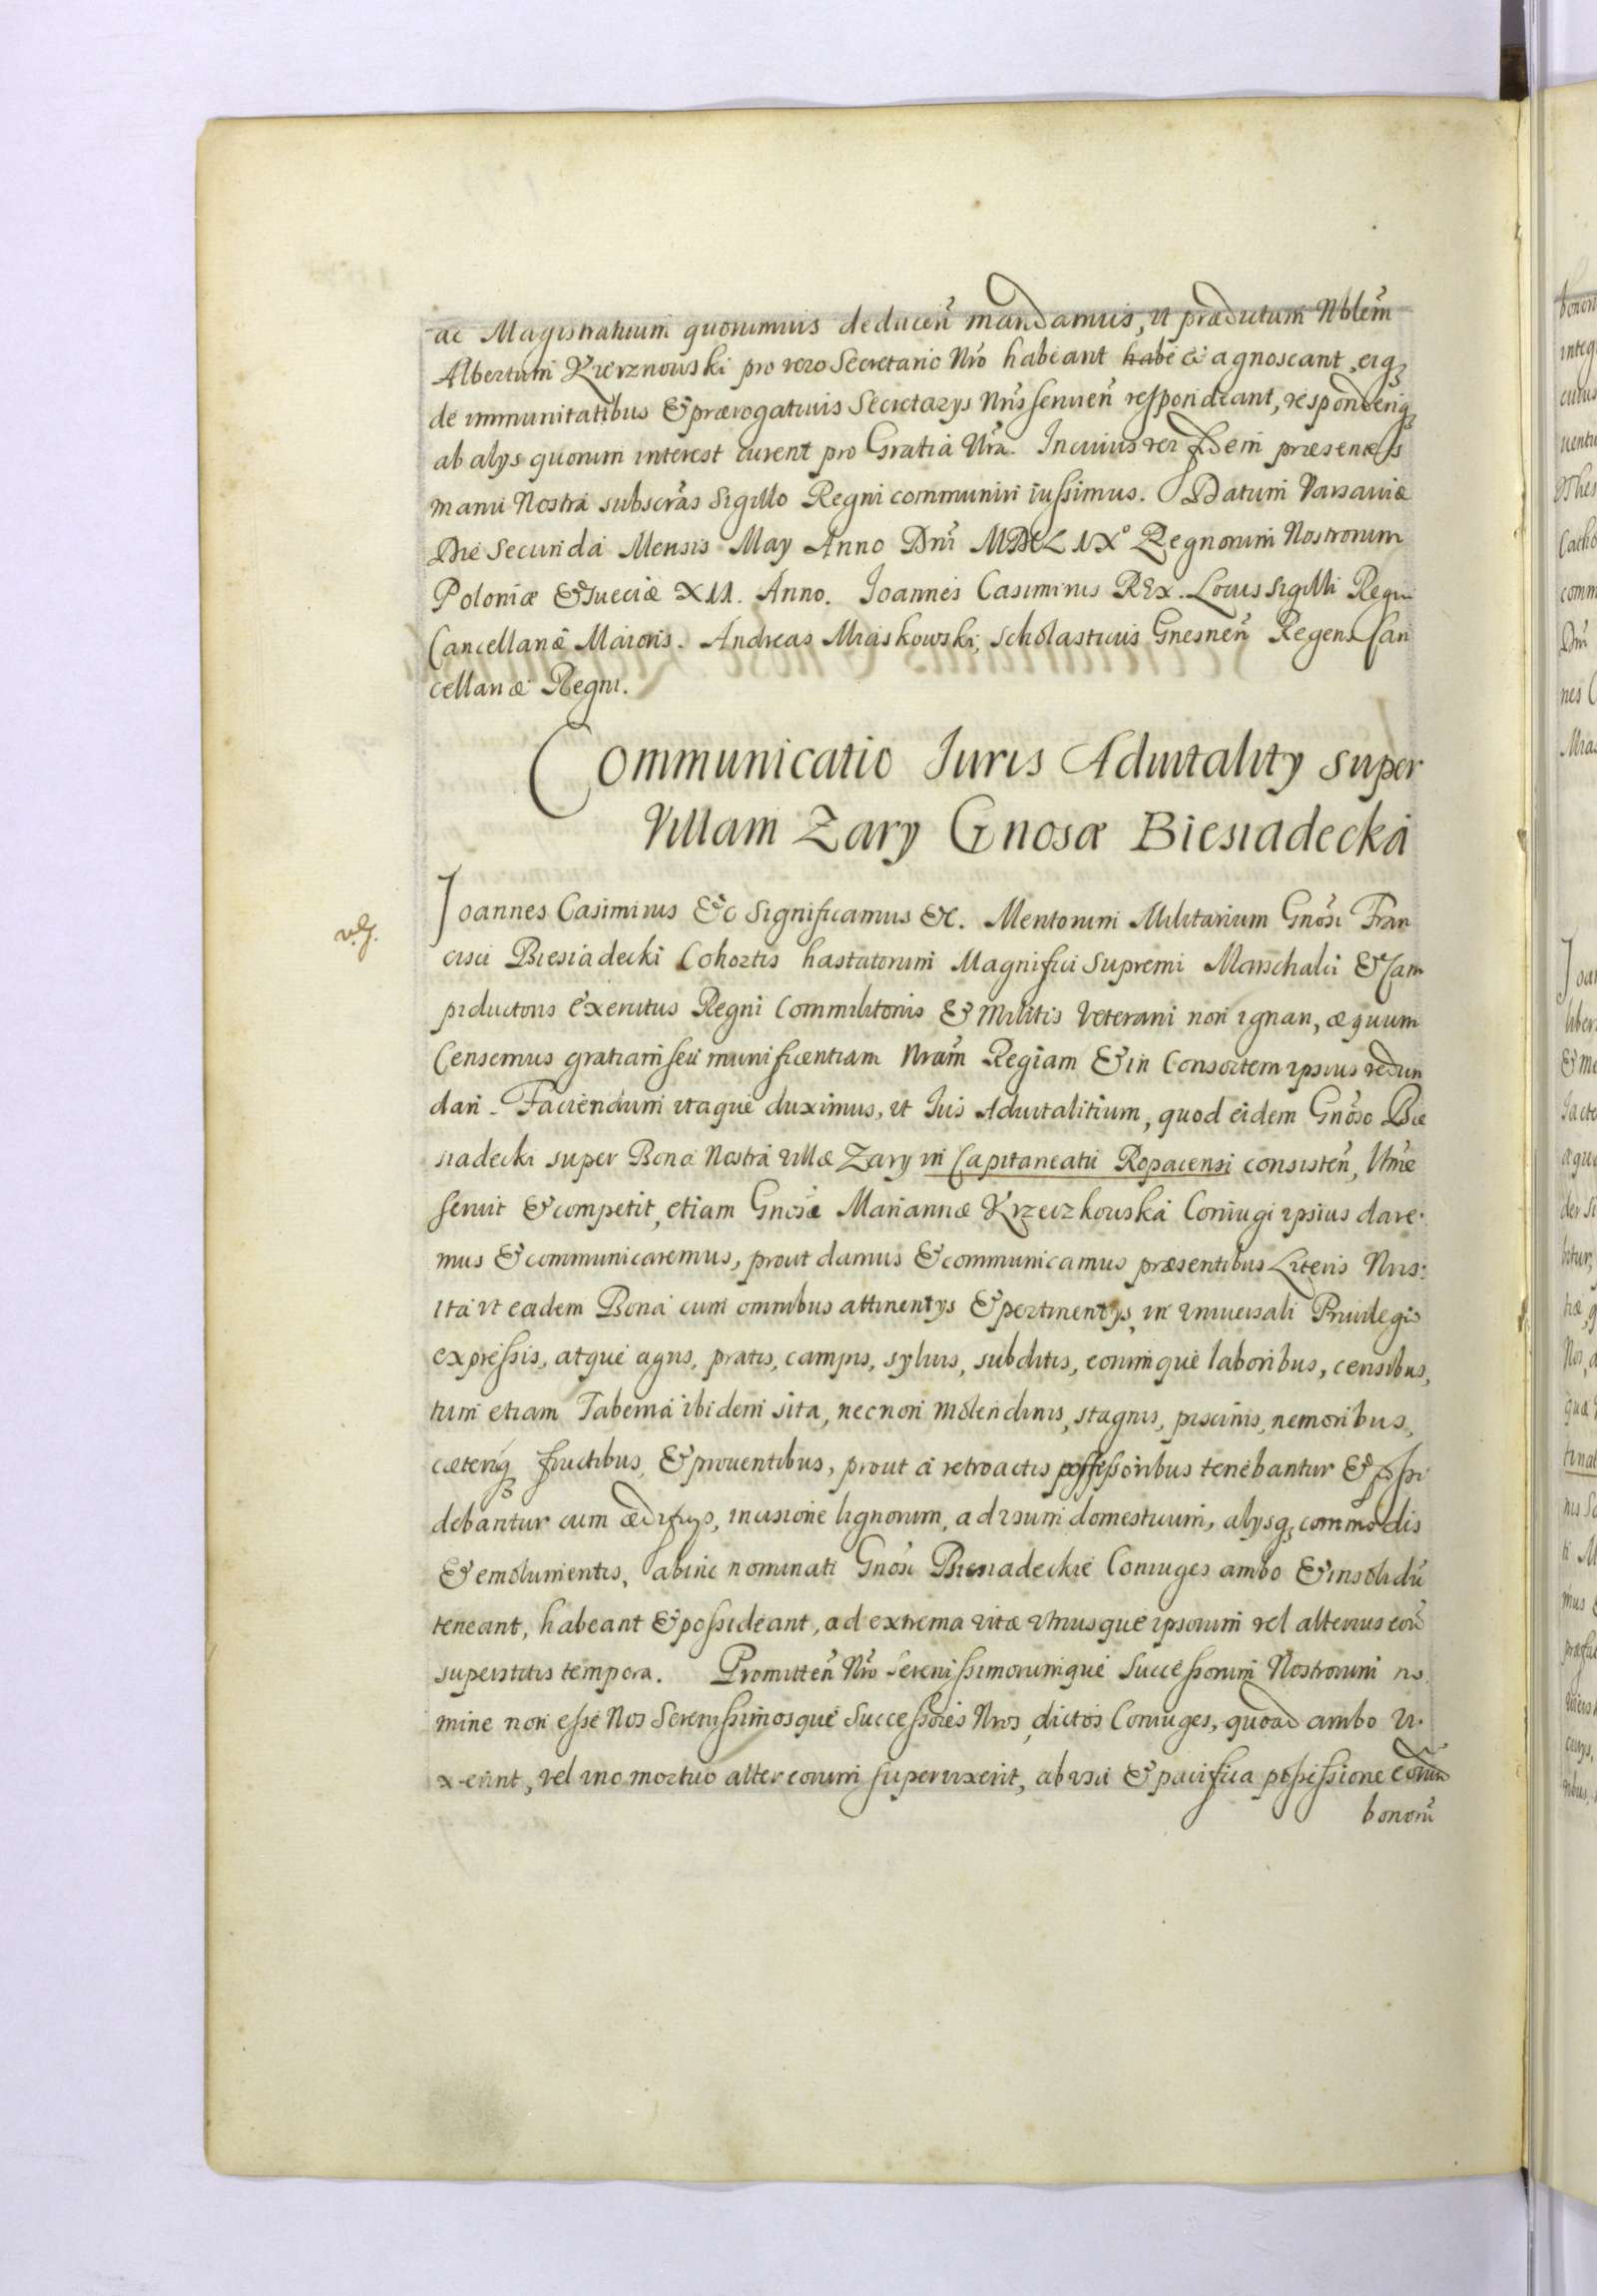 ac Magistratuum quorumuis deducen̄ mandamus, ut prædictum Nblem̄
Albertum Kierznowski pro vero Secretario Nro habeant habe et agnoscant, eiq₃
de immunitatibus & prærogatiuis Secretarys Nris seruien̄ respondeant, responderiq₃
ab alys quorum interest curent pro Gratia Nra. In cuius rei fidem præsentes
manu Nostra subscrās Sigillo Regni communiri iussimus. Datum Varsauiæ
Die Secunda Mensis May Anno Dni MDCLIX° Regnorum Nostrorum
Poloniæ & Sueciæ XII. Anno. Joannes Casimirus REx. Locus Sigilli Regni
Cancellariæ Maioris. Andreas Miaskowski, Scholasticus Gnesnen̄ Regens Can
cellariæ Regni.
Communicatio Juris Aduitality super
Villam Zary Gnosæ Biesiadecka
v.g.
Joannes Casimirus &c Significamus &c. Meritorum Militarium Gnosi Fran
cisci Biesiadecki Cohortis hastatorum Magnifici Supremi Marschalci & Cam
piductoris Exercitus Regni Commilitonis & Militis Veterani non ignari, æquum
Censemus gratiam seu munificentiam Nram Regiam & in Consortem ipsius redun
dari. Faciendum itaque duximus, ut Jus Aduitalitium, quod eidem Gnoso Bie
siadecki super Bona Nostra villæ Zary in Capitaneatu Ropacensi consisten̄,
seruit & competit, etiam Gnosæ Mariannæ Krzeczkouska Coniugi ipsius dare.
mus & communicaremus, prout damus & communicamus præsentibus Literis Nris:
ita ut eadem Bona cum omnibus attinentys & pertinentys, in vniuersali Priuilegio
expressis, atque agris, pratis, campis, syluis, subditis, eorumque laboribus, censibus,
tum etiam Taberna ibidem sita, necnon molendinis, stagnis, piscinis, nemoribus,
cæterisq₃ fructibus & prouentibus, prout a retroactis possessoribus tenebantur & possi
debantur cum ædificys, incisione lignorum, ad vsum domesticum, alysq₃ commodis
& emolumentis, abinc nominati Gnosi Biesiadeckie Coniuges ambo & insolidū
teneant, habeant & possideant, ad extrema vitæ vtriusque ipsorum vel alterius eorū
superstitis tempora. Promitten̄ Nro Serenissimorumque Successorum Nostrorum no
mine non esse Nos Serenissimosque Successores Nros, dictos Coniuges, quoad ambo vi.
xerint, vel vno mortuo alter eorum superuixerit, ab vsu & pacifica possessione eorum
bonorū